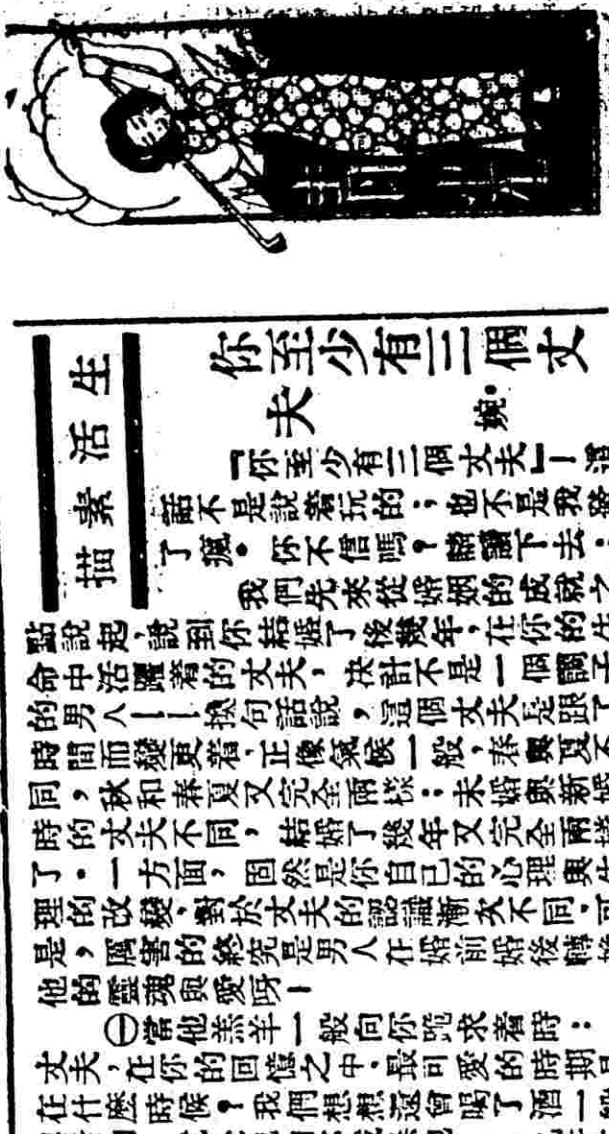 生活素描
你至少有三個丈
夫
婉·
『你至少有三個丈夫』—這
話不是說着玩的;也不是我發
了瘋·你不信嗎?請讀下去:
我們先來從婚姻的成就之
點說起,說到你結婚了後幾年,在你的生
命中活躍着的丈夫,決計不是一個調子
的男人——換句話說,這個丈夫是跟了
時間而變更着,正像氣候一般,春與夏不
同,秋和春夏又完全兩樣;未婚與新婚
時的丈夫不同,結婚了幾年又完全兩樣
了·一方面,固然是你自已的心理與生
理的改變,對於丈夫的認識漸次不同,可
是,厲害的終究是男人在婚前婚後轉換
他的靈魂與愛呀—
㊀當他羔羊一般向你跪求着時:
丈夫,在你的回憶之中,最可愛的時期是
在什麼時候?我們想想還曾喝了酒一般